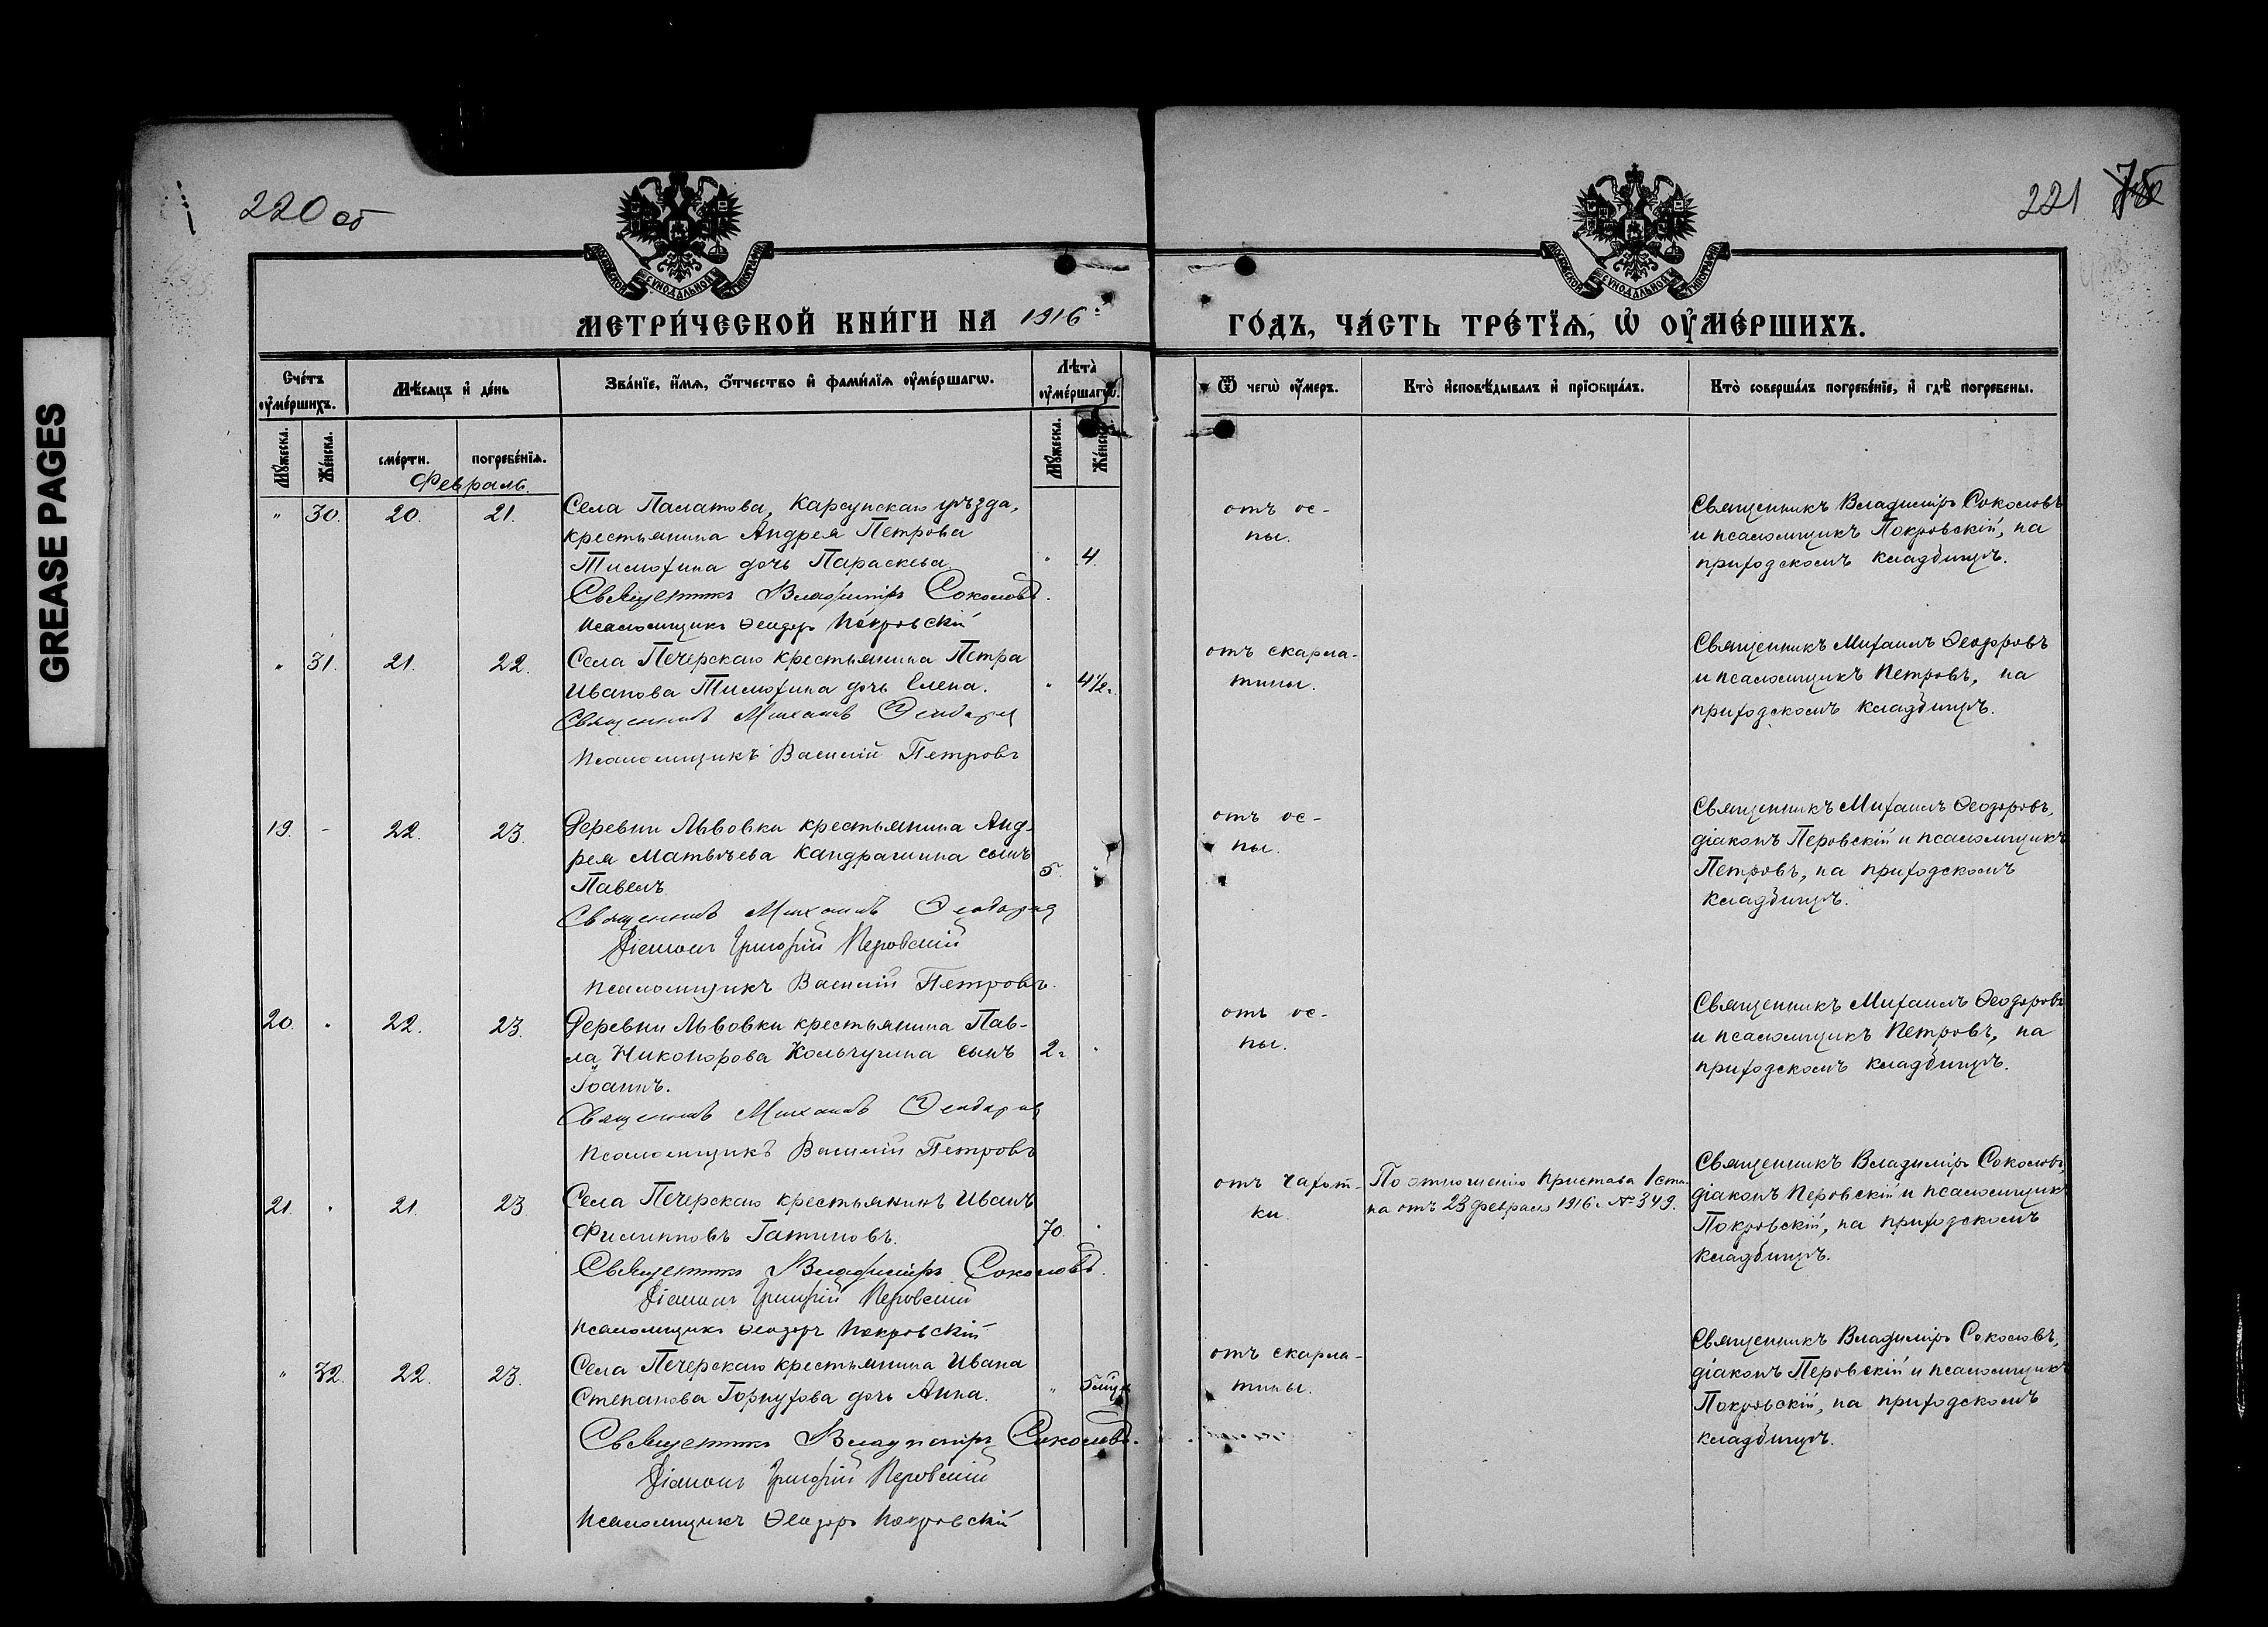 GREASE PAGES
220 об
221
МОСКОВСКОЙ СѴНОДАЛЬНОЙ ТИПОГРАФІИ
МОСКОВСКОЙ СѴНОДАЛЬНОЙ ТИПОГРАФІИ
МЕТРИ́ЧЕСКОЙ КНИ́ГИ НА 1916 г.
ГО́ДЪ, ЧА́СТЬ ТРЕ́ТЇѦ, Ѡ҆ ОУ҆МЕ́РШИХЪ.
Сче́тъ оу҆ме́ршихъ.
Мѣ́сяцъ и҆ де́нь
Зва́нїе, и҆́мѧ, ѻ҆́тчество и҆ фамі́лїѧ оу҆ме́ршагѡ.
Лѣта̀ оу҆ме́ршагѡ.
Ѿ чегѡ̀ оу҆́меръ.
Кто̀ и҆сповѣ́дывалъ и҆ прїѻбща́лъ.
Кто̀ соверша́лъ погребе́нїе, и҆ гдѣ̀ погребены.
Мꙋ́жеска.
Же́нска.
сме́рти.
погребе́нїѧ.
Мꙋ́жеска.
Же́нска.
Февраль.
" 30. 20. 21.
Села Палатова, Карсунскаго уѣзда,
крестьянина Андрея Петрова
Тимофина дочь Параскева " 4.
Священникъ Владиміръ Соколовъ.
Псаломщикъ Ѳеодоръ Покровскій
отъ ос-
пы.
Священникъ Владиміръ Соколовъ
и псаломщикъ Покровскій, на
приходскомъ кладбищѣ.
" 31. 21. 22.
Села Печерскаго крестьянина Петра
Иванова Тимофина дочь Елена. " 4½ г.
Священникъ Михаилъ Ѳеодоровъ
Псаломщикъ Василій Петровъ
отъ скарла-
тины.
Священникъ Михаилъ Ѳеодоровъ
и псаломщикъ Петровъ, на
приходскомъ кладбищѣ.
19. - 22. 23.
Деревни Львовки крестьянина Анд-
рея Матвѣева Кандрашина сынъ
Павелъ 5. "
Священникъ Михаилъ Ѳеодоровъ
Діаконъ Григорій Перовскій
Псаломщикъ Василій Петровъ.
отъ ос-
пы.
Священникъ Михаилъ Ѳеодоровъ,
діаконъ Перовскій и псаломщикъ
Петровъ, на приходскомъ
кладбищѣ.
20. " 22. 23.
Деревни Львовки крестьянина Пав-
ла Никонорова Кольчугина сынъ 2 г. "
Іоаннъ.
Священникъ Михаилъ Ѳеодоровъ
Псаломщикъ Василій Петровъ
отъ ос-
пы.
Священникъ Михаилъ Ѳеодоровъ
и псаломщикъ Петровъ, на
приходскомъ кладбищѣ.
21. " 21. 23
Села Печерскаго крестьянинъ Иванъ
Филипповъ Гатиловъ. 70. "
Священникъ Владиміръ Соколовъ.
Діаконъ Григорій Перовскій
Псаломщикъ Ѳеодоръ Покровскій
отъ чахот-
ки.
По отношенію пристава 1 ста-
на отъ 23 февраля 1916 г. № 349.
Священникъ Владиміръ Соколовъ,
діаконъ Перовскій и псаломщикъ
Покровскій, на приходскомъ
кладбищѣ.
" 32. 22. 23.
Села Печерскаго крестьянина Ивана
Степанова Горнухова дочь Анна. "
Священникъ Владиміръ Соколовъ.
Діаконъ Григорій Перовскій
Псаломщикъ Ѳеодоръ Покровскій
отъ скарла-
тины.
Священникъ Владиміръ Соколовъ,
діаконъ Перовскій и псаломщикъ
Покровскій, на приходскомъ
кладбищѣ.